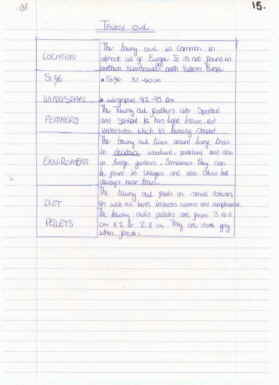 15.
Tawny owl
LOCATION
The tawny owl is common in
almost all of Europe. It is not found in
northern
Size
• Size: 37-40 cm
WINGSPAN
• wingspan 92-95 cm
FEATHERS
The tawny owl feathers are spotted
and striped. It has light brown
underside which is
ENVIRONMENT
The tawny owl lives around large trees
in deciduous woodland, parkland and also
in large gardens. Sometimes they can
be found in villages and also cities but
always near trees.
DIET
The tawny owl feeds on small
as well as birds, insects worms and amphibians.
PELLETS
The tawny owl's pellets are from 3 to 6
cm x 2 to 2.5 cm. They are dark grey
when fresh.